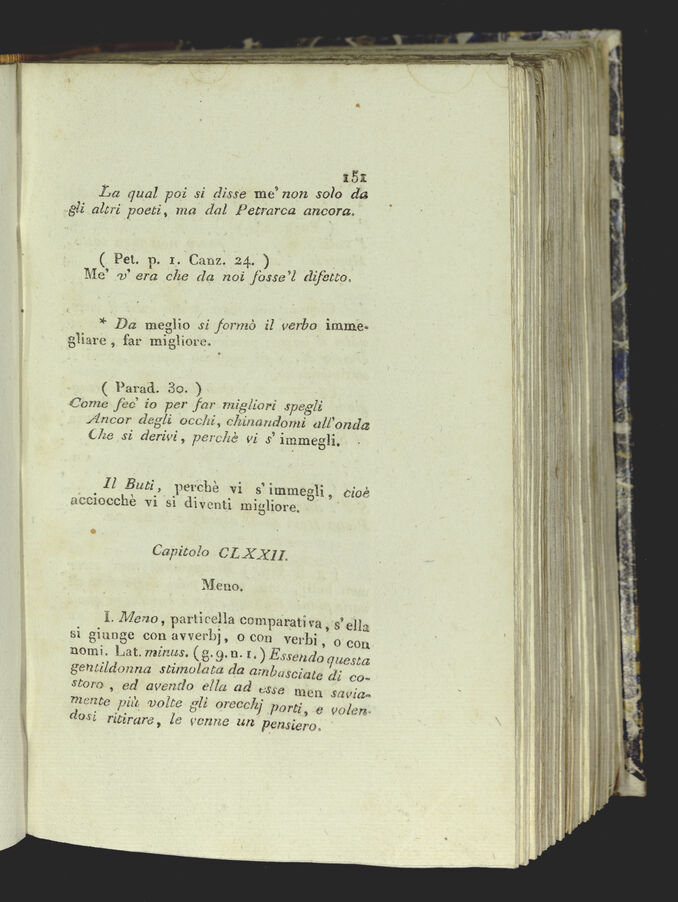 151
La qual poi si disse me' non solo da
gli altri poeti, ma dal Petrarca ancora.
( Pet. p. 1. Canz. 24. )
Me' v' era che da noi fosse'l difetto.
* Da meglio si formò il verbo imme-
gliare, far migliore.
( Parad. 30. )
Come fec' io per far migliori spegli
Ancor degli occhi, chinandomi all'onda
Che si derivi, perchè vi s' immegli.
Il Buti, perchè vi s'immegli, cioè
acciocchè vi si diventi migliore.
Capitolo CLXXII.
Meno.
I. Meno, particella comparativa, s'ella
si giunge con avverbj, o con verbi, o con
nomi. Lat. minus. (g. 9. n. 1.) Essendo questa
gentildonna stimolata da ambasciate di co-
storo, ed avendo ella ad esse men savia-
mente più volte gli orecchj porti, e volen-
dosi ritirare, le venne un pensiero.